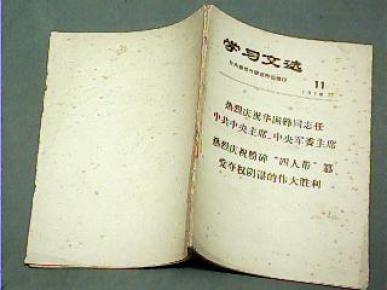 学习文选
11
热烈庆祝华国锋同志任
中共中央主席、中央军委主席
热烈庆祝粉碎“四人帮”篡
党夺权阴谋的伟大胜利